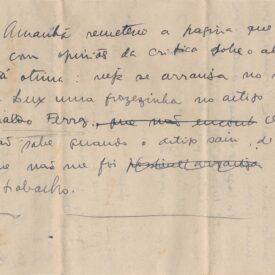 Amanhã remeterei a pagina que
com opinião da critica sobre o al
á otima: veja se arranja no
Lux uma frazezinha no artigo
aldo Ferraz, que não encont
ão sabe quando o artigo sair, d
e não me foi
trabalho.